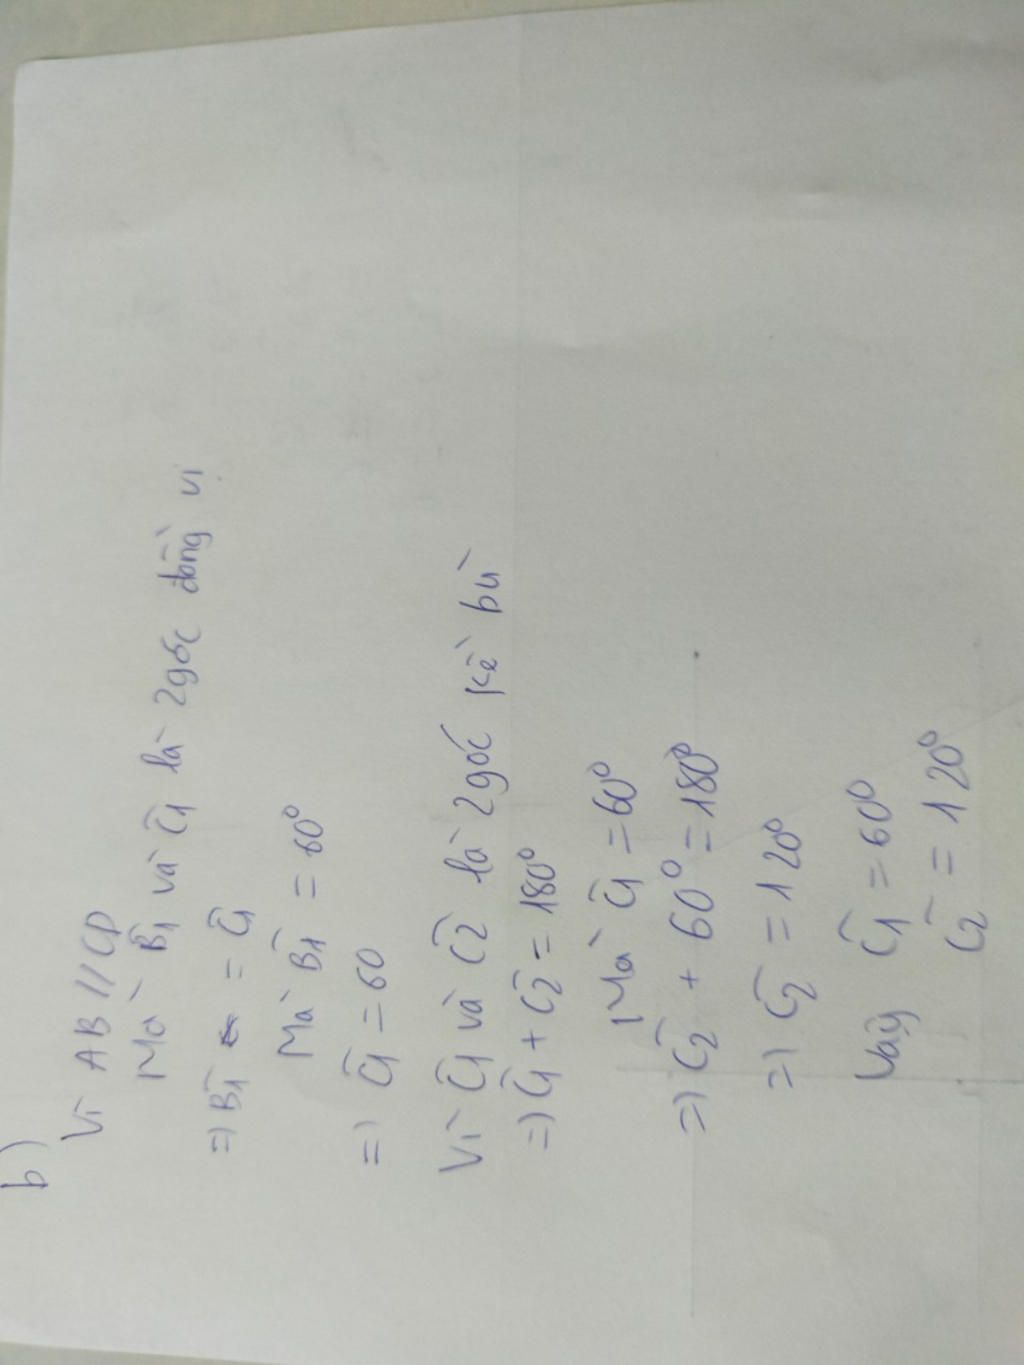 b)
Vì AB // CD
Mà B̂1 và Ĉ1 là 2 góc đồng vị
=) B̂1 = Ĉ1
Mà B̂1 = 60°
=) Ĉ1 = 60
Vì Ĉ1 và Ĉ2 là 2 góc kề bù
=) Ĉ1 + Ĉ2 = 180°
Mà Ĉ1 = 60°
=) Ĉ2 + 60° = 180°
=) Ĉ2 = 120°
Vậy Ĉ1 = 60°
Ĉ2 = 120°